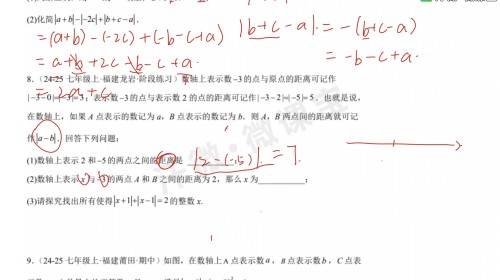 (2)化简|a+b|-|-2c|+|b+c-a|.
=(a+b)-(-2c)+(-b-c+a)
|b+c-a|.=-(b+c-a)
=a+b+2c-b-c+a.
=-b-c+a.
=2a+c.
8.(24-25 七年级上·福建龙岩·阶段练习)数轴上表示-3的点与原点的距离可记作
|-3-0|=|-3|=3;表示-3的点与表示2的点的距离可记作|-3-2|=|-5|=5.也就是说,
在数轴上,如果A点表示的数记为a,B点表示的数记为b.则A,B两点间的距离就可记
作|a-b|.回答下列问题:
(1)数轴上表示2和-5的两点之间的距离是 |2-(-5)|=7.
(2)数轴上表示x与-3的两点A和B之间的距离为2,那么x为________;
(3)请探究找出所有使得|x+1|+|x-1|=2的整数x.
9.(24-25 七年级上·福建莆田·期中)如图,在数轴上A点表示数a,B点表示数b,C点表